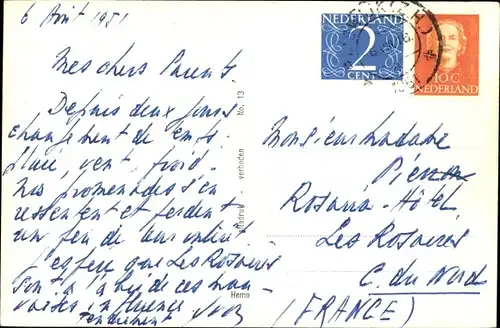 6 Août 1951
Mes chers Parents
Depuis deux jours
changement de temps.
pluie, vent, froid.
Nos promenades s'en
ressentent et perdent
un peu de leur intérêt
J'espère que Les Rosaires
sont à l'abri de ces mau-
vaises influences
Tendrement
Nadruk verboden No. 13
Hemo
NEDERLAND
2
CENT
10 C
NEDERLAND
Monsieur Madame
Rosaria-Hôtel
Les Rosaires
C. du Nord
(FRANCE)